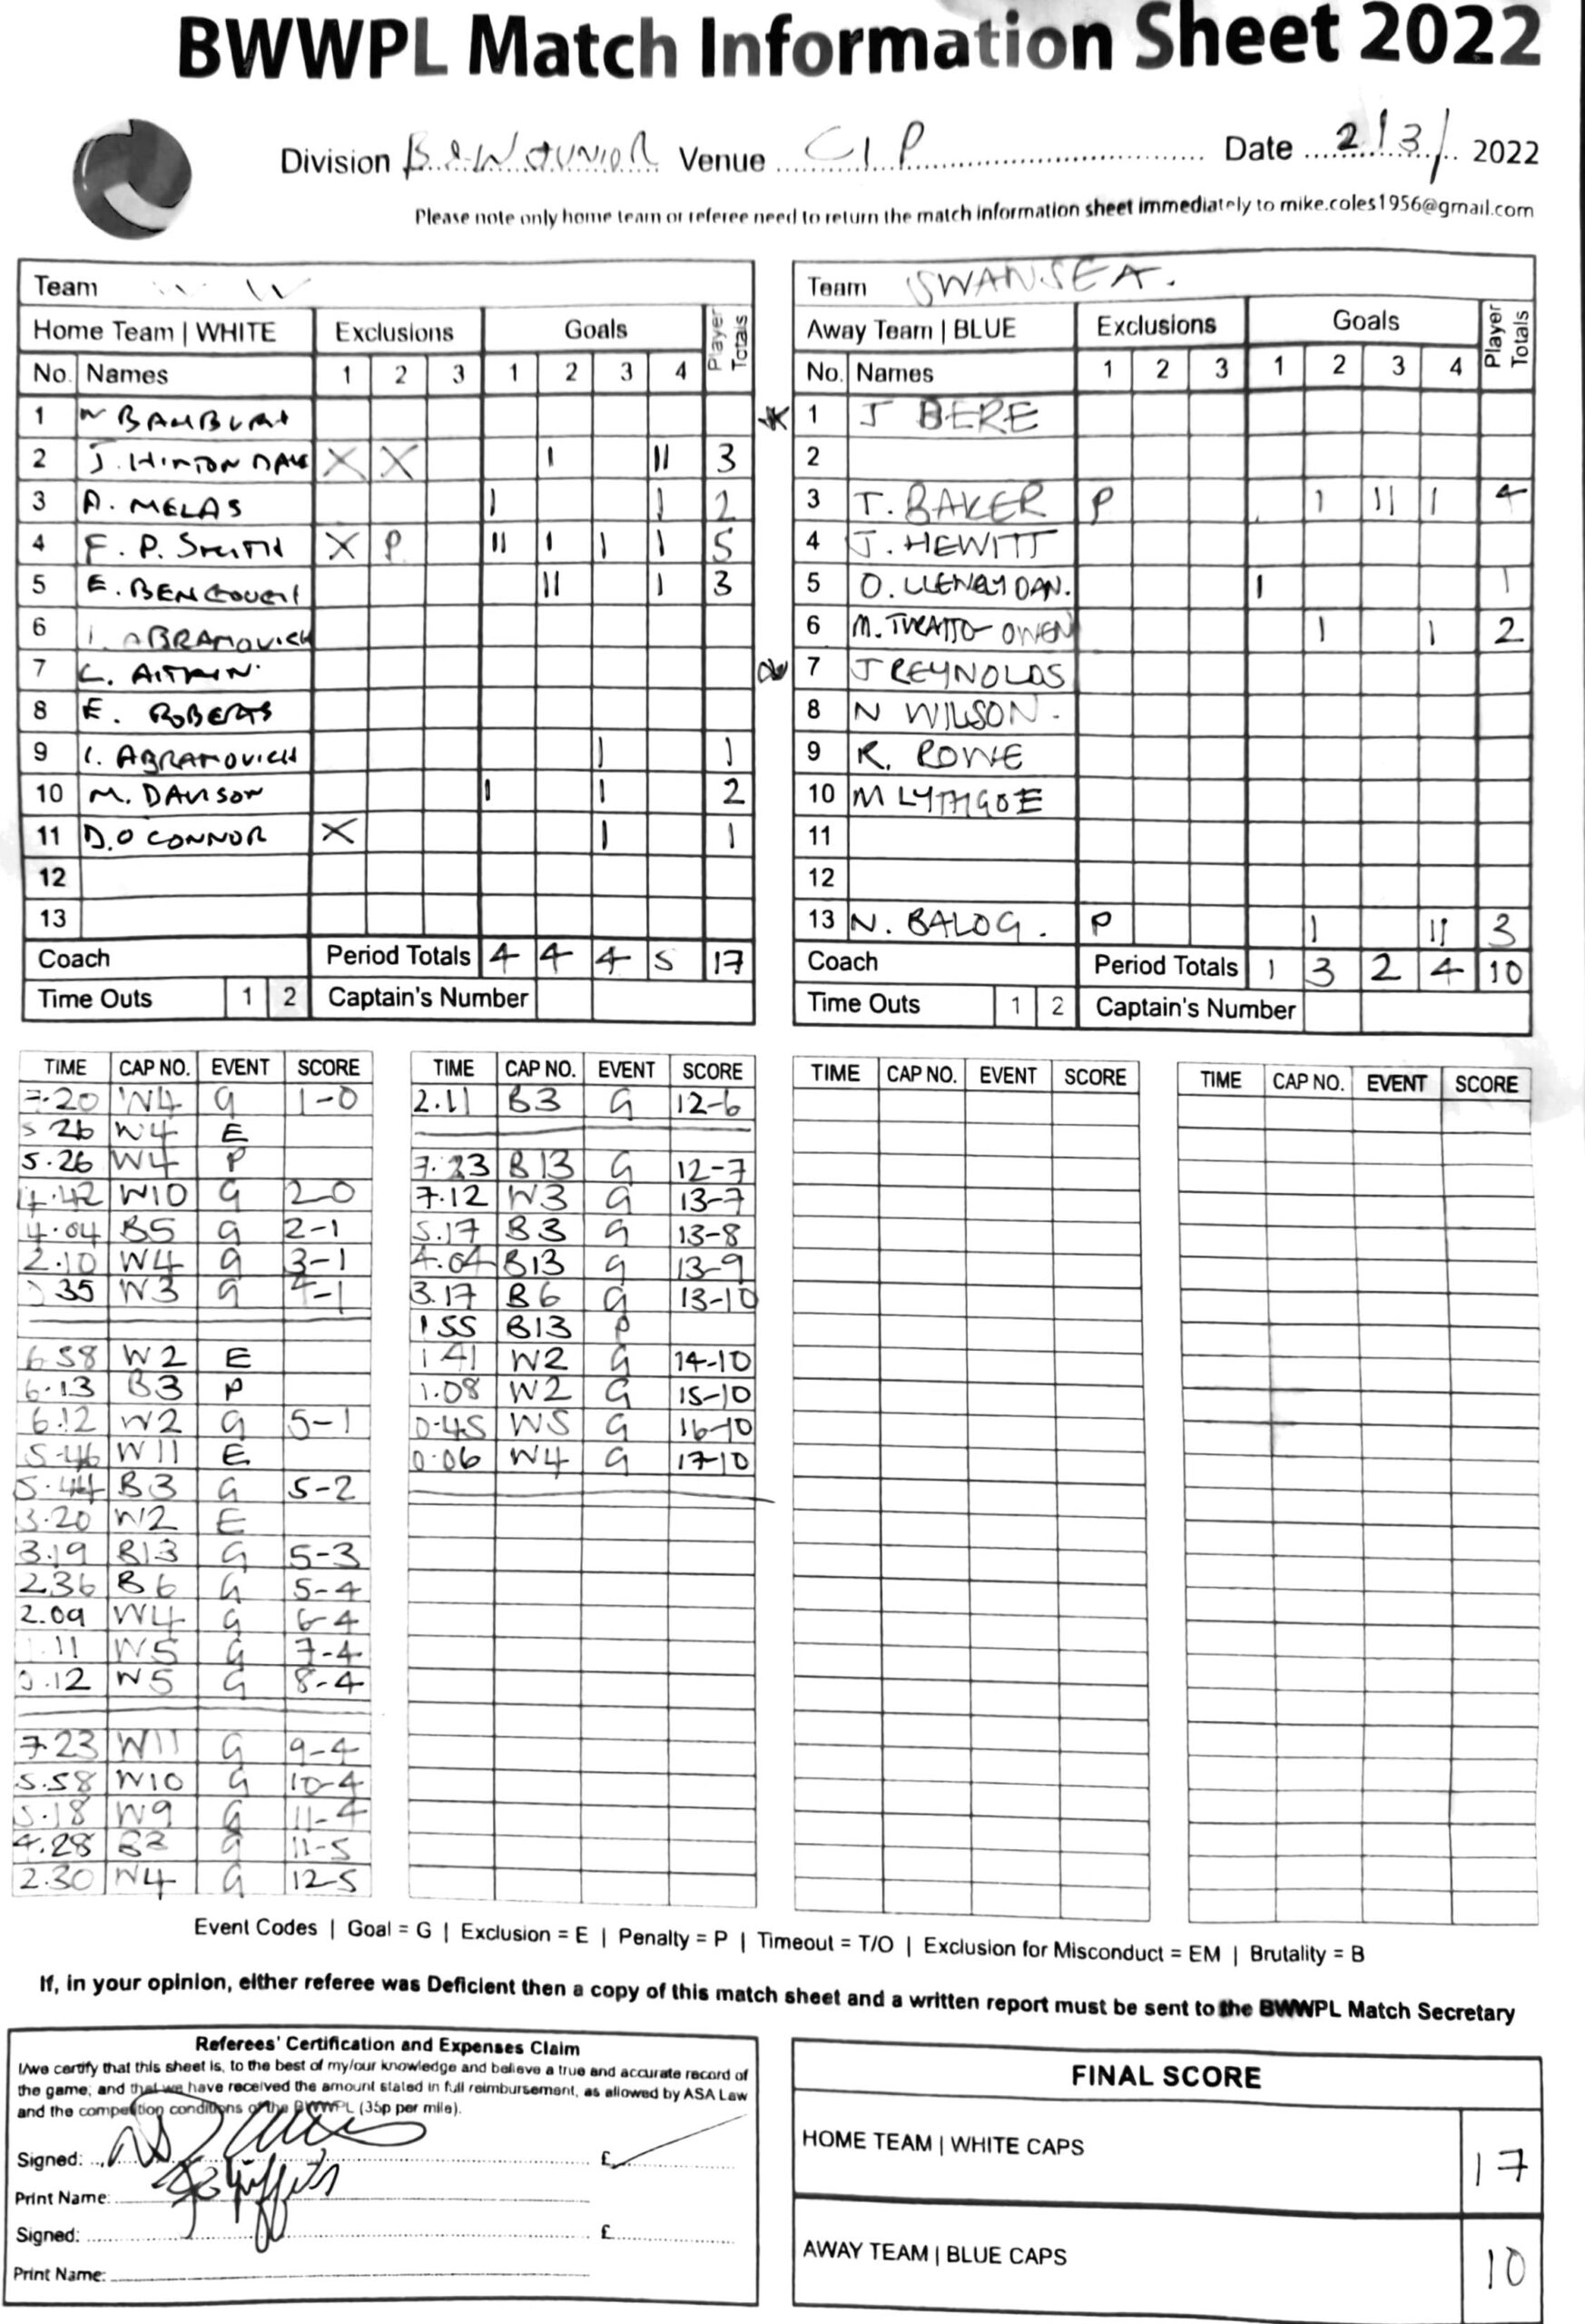 BWWPL Match Information Sheet 2022
Division B&W JUNIOR Venue CIP Date 2/3/ 2022
Please note only home team or referee need to return the match information sheet immediately to mike.coles1956@gmail.com
Team
Home Team | WHITE Exclusions Goals Player Totals
No. Names 1 2 3 1 2 3 4
1
2 J. HINTON X X I II 3
3 A. MELAS I I 2
4 F. P. SMITH X P II I I I 5
5 E. II I 3
6 I. ABRAMOVICH
7 L. AITKIN
8 E. ROBERTS
9 I. ABRAMOVICH I 1
10 M. DAVISON I I 2
11 D.O CONNOR X I 1
12
13
Coach Period Totals 4 4 4 5 17
Time Outs 1 2 Captain's Number
Team SWANSEA.
Away Team | BLUE Exclusions Goals Player Totals
No. Names 1 2 3 1 2 3 4
1 J BERE
2
3 T. BAKER P I II I 4
4 J. HEWITT
5 O. I 1
6 M. OWEN I I 2
7 J REYNOLDS
8 N WILSON.
9 R. ROWE
10 M LYTHGOE
11
12
13 N. BALOG. P I II 3
Coach Period Totals 1 3 2 4 10
Time Outs 1 2 Captain's Number
TIME CAP NO. EVENT SCORE
7.20 W4 G 1-0
5 26 W4 E
5.26 W4 P
4.42 W10 G 2-0
4.04 B5 G 2-1
2.10 W4 G 3-1
35 W3 G 4-1
6 58 W2 E
6.13 B3 P
6.12 W2 G 5-1
5.46 W11 E
5.44 B3 G 5-2
3.20 W2 E
3.19 B13 G 5-3
2.36 B6 G 5-4
2.09 W4 G 6-4
11 W5 G 7-4
0.12 W5 G 8-4
7.23 W11 G 9-4
5.58 W10 G 10-4
5.18 W9 G 11-4
4.28 B3 G 11-5
2.30 W4 G 12-5
TIME CAP NO. EVENT SCORE
2.11 B3 G 12-6
7.23 B13 G 12-7
7.12 W3 G 13-7
5.17 B3 G 13-8
4.04 B13 G 13-9
3.17 B6 G 13-10
1 55 B13 P
1 41 W2 G 14-10
1.08 W2 G 15-10
0.45 W5 G 16-10
0.06 W4 G 17-10
TIME CAP NO. EVENT SCORE
TIME CAP NO. EVENT SCORE
Event Codes | Goal = G | Exclusion = E | Penalty = P | Timeout = T/O | Exclusion for Misconduct = EM | Brutality = B
If, in your opinion, either referee was Deficient then a copy of this match sheet and a written report must be sent to the BWWPL Match Secretary
Referees' Certification and Expenses Claim
I/we certify that this sheet is, to the best of my/our knowledge and believe a true and accurate record of
the game; and that we have received the amount stated in full reimbursement, as allowed by ASA Law
and the competition conditions of the BWWPL (35p per mile).
Signed: £
Print Name:
Signed: £
Print Name:
FINAL SCORE
HOME TEAM | WHITE CAPS 17
AWAY TEAM | BLUE CAPS 10